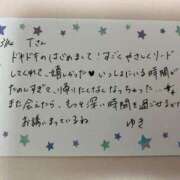 3/12 Tさん
ドキドキのはじめまして! すごくやさしくリード
してくれて、嬉しかった♥ いっしょにいる時間が
たのしすぎて、帰りたくなくなっちゃった…
また会えたら、もっと深い時間を過ごせるように
お誘いまっているね
ゆき